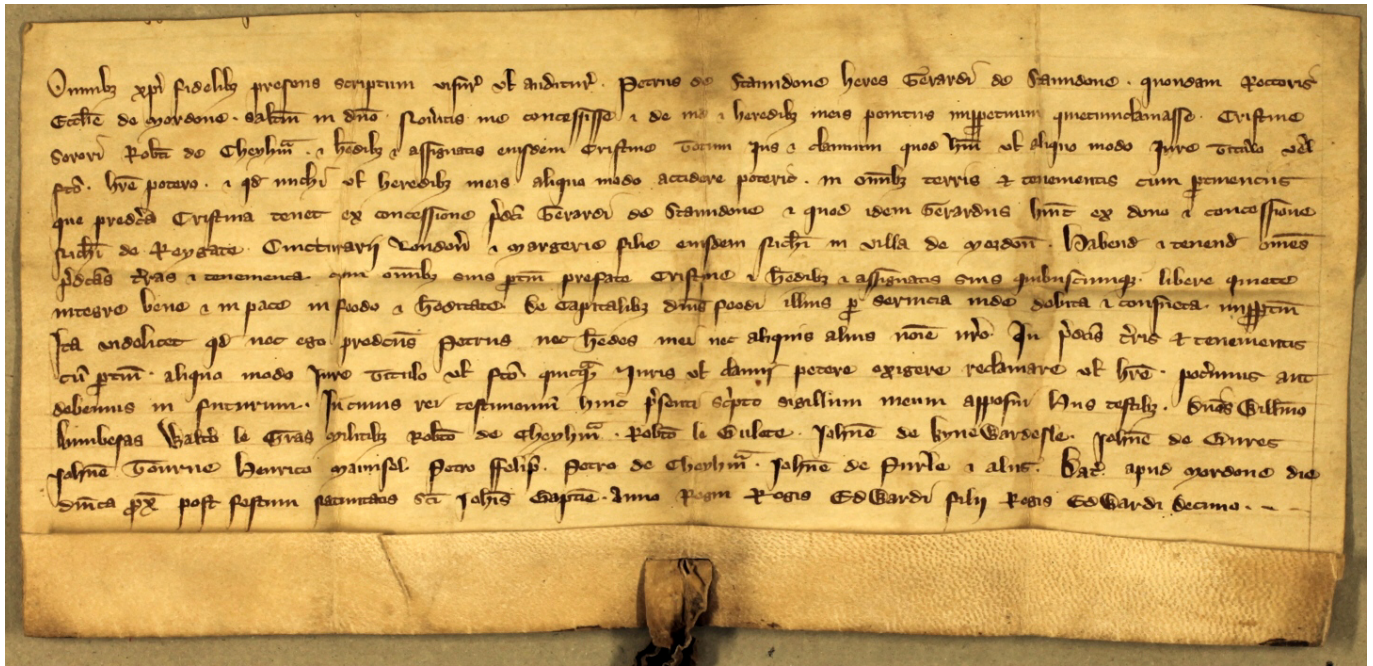 Omnibz xpi fidelibz presens scriptum visur vl auditur . Petrus de Staundone heres Gerardi de Staundone . quondam Rectoris
Ecclie de Mordone . saltm in dno . Noveritis me concessisse & de me & heredibz meis penitus imppetuum quietumclamasse . Cristine
Sorori Robti de Cheyhm . & hedibz & assignatis eiusdem Cristine Totum Jus & clamium quod hui vl aliquo modo Jure Titulo vel
fco . hre potero . & qd michi vl heredibz meis aliquo modo accidere poterit . in omibz terris et tenementis cum ptinenciis
que predca Cristina tenet ex concessione pdci Gerardi de Staundone & quod idem Gerardus huit ex dono & concessione
Nichi de Reygate . Cincturarii London & Margerie filie eiusdem Nichi in villa de Mordon . Habend & tenend omes
pdcas tras & tenementa cum omibz suis ptin prefate Cristine & hedibz & assignatis suis quibuscumqz . libere quiete
integre bene & in pace in feodo & heditate De Capitalibz dnis feodi illius p servicia inde debita & consueta imppetm
Ita videlicet qd nec ego predcus Petrus nec hedes mei nec aliquis alius noie nro In pdcis tris et tenementis
cu ptin . aliquo modo Jure Titulo vl fco quicqam Juris vl clamii petere exigere reclamare vl hre . poterimus aut
debemus in futurum . In cuius rei testimonium huic psenti scpto sigillum meum apposui Hiis testibz . Dnis Willmo
Ambesas Walto le Gras Militibz Robto de Cheyhm . Robto le Gulote . Johne de Kynewardesle . Johne de Cures
Johne Tourne Henrico Maunsel Petro ffelip . Petro de Cheyhm . Johne de Purle & aliis . Dat apud Mordone die
dnica px post festum Nativitatis sci Johis Baptiste . Anno Regni Regis Edwardi filii Regis Edwardi decimo .